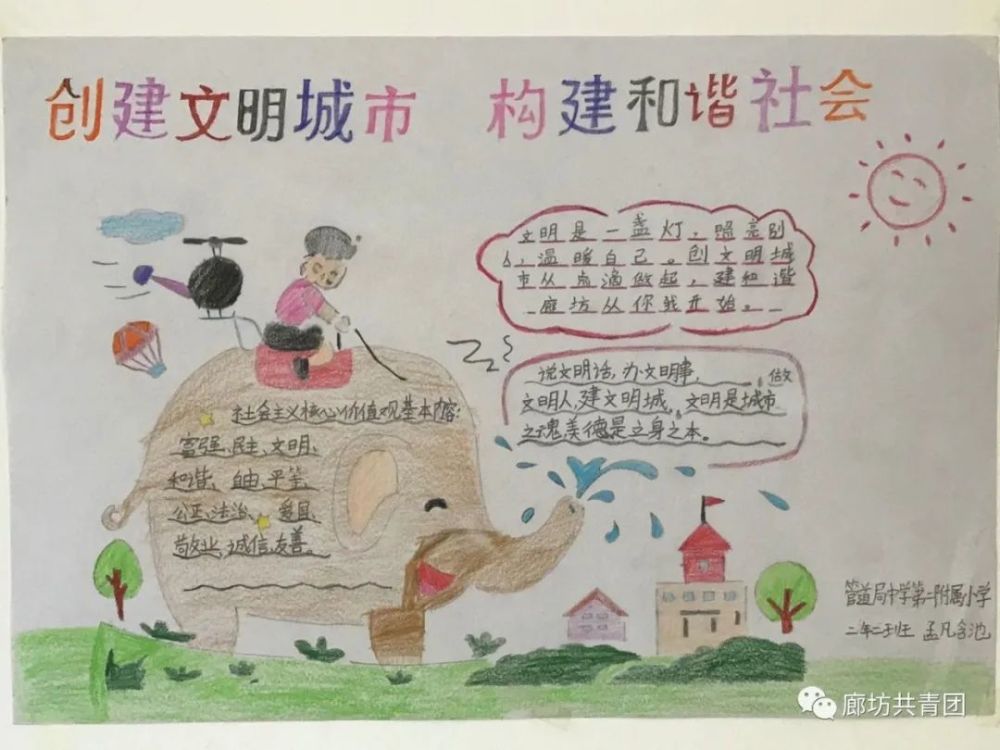 创建文明城市 构建和谐社会
文明是一盏灯，照亮别
人，温暖自己。创文明城
市从点滴做起，建和谐
庭坊从你我开始。
说文明话，办文明事，做
文明人，建文明城。文明是城市
之魂，美德是立身之本。
社会主义核心价值观基本内容：
富强、民主、文明、
和谐、自由、平等、
公正、法治、爱国、
敬业、诚信、友善。
管道局中学第一附属小学
二年二班 孟凡
廊坊共青团